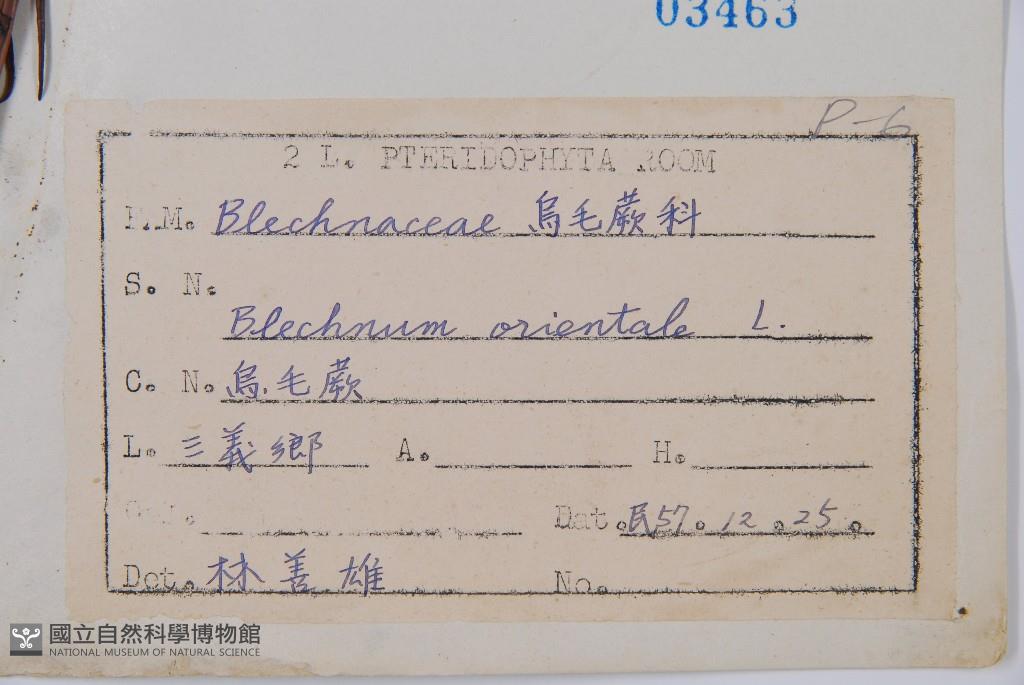 03463
P-6
2 L. PTERIDOPHYTA ROOM
F.M. Blechnaceae 烏毛蕨科
S. N.
Blechnum orientale L.
C. N. 烏毛蕨
L. 三義鄉 A. H.
Col. Dat. 民57. 12. 25.
Det. 林善雄 No.
國立自然科學博物館
NATIONAL MUSEUM OF NATURAL SCIENCE